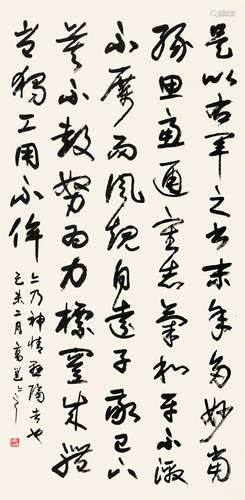 是以右軍之書末年多妙當
緣思慮通審志氣和平不激
不厲而風規自遠子敬已下
莫不鼓努為力標置成體
豈獨工用不侔
亦乃神情懸隔者也
己未二月